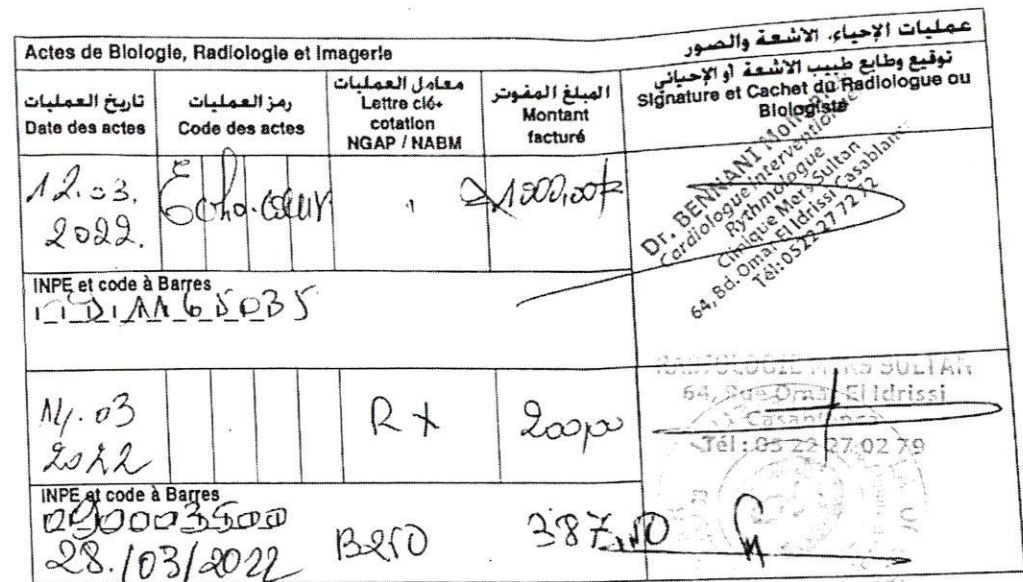 Actes de Biologie, Radiologie et Imagerie
عمليات الإحياء، الأشعة والصور
تاريخ العمليات
Date des actes
رمز العمليات
Code des actes
معامل العمليات
Lettre clé+
cotation
NGAP / NABM
المبلغ المفوتر
Montant
facturé
توقيع وطابع طبيب الاشعة أو الإحيائي
Signature et Cachet du Radiologue ou
Biologiste
12.03.
2022.
Echo.cœur
1000,00
Dr. BENNANI
Cardiologue Interventionnel
Rythmologue
Clinique Mers Sultan
64, Bd. Omar El Idrissi Casablanca
Tél: 0522 27 72 72
INPE et code à Barres
1165035
03
2022
RX
200,00
RADIOLOGIE MERS SULTAN
64, Rue Omar El Idrissi
Casablanca
Tél : 05 22 27 02 79
INPE et code à Barres
090003500
28./03/2022
B250
387,50